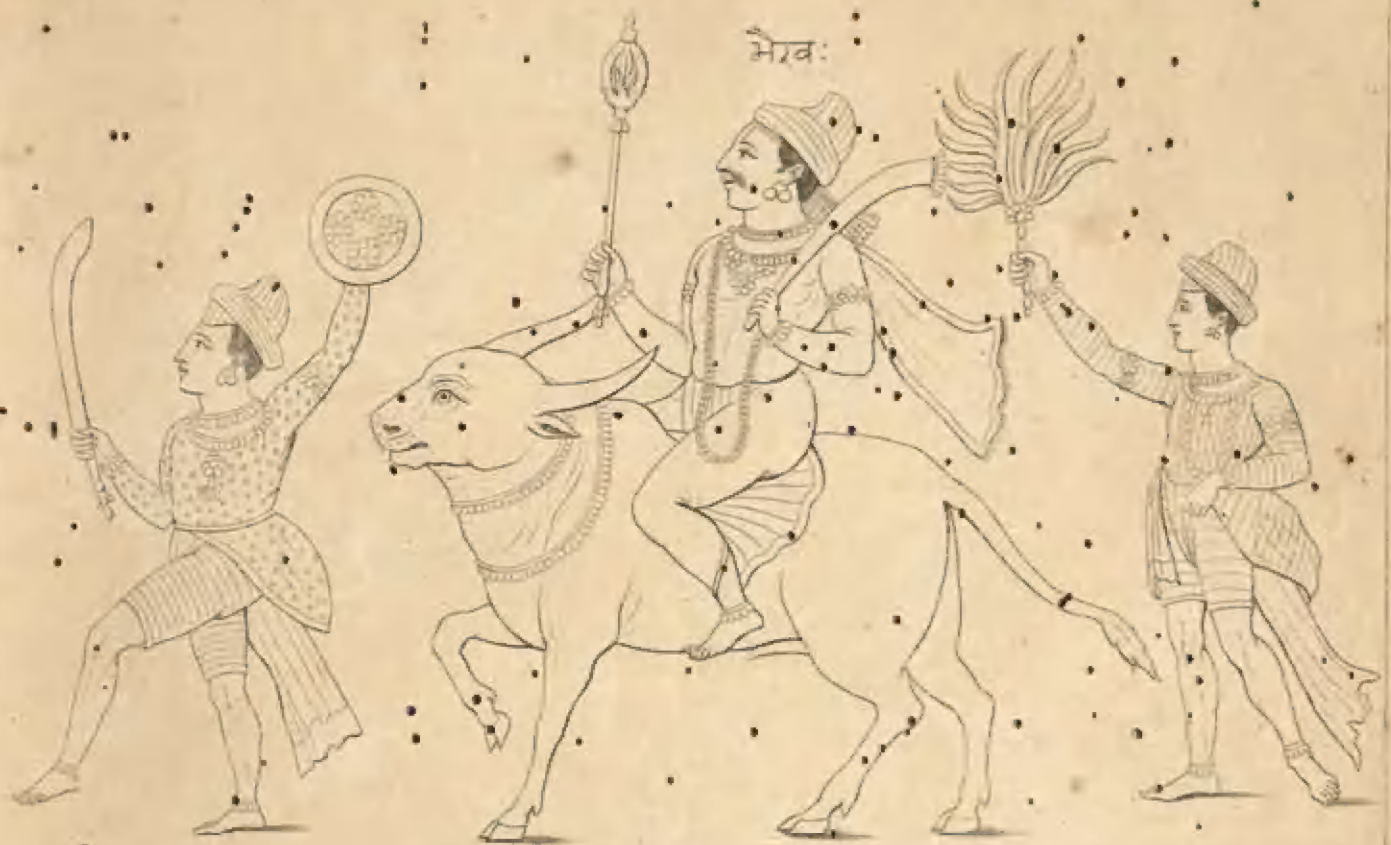 भैरवः